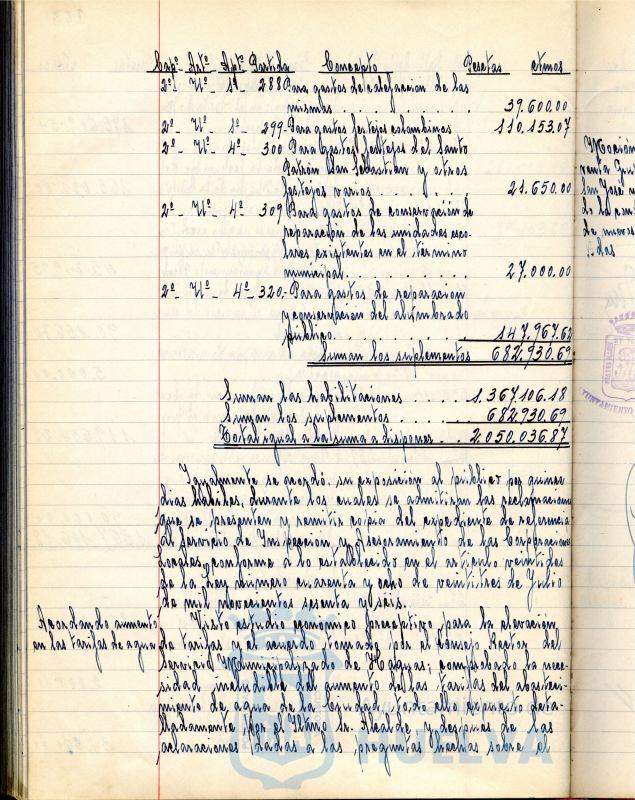 Capº Artº Aptº Partida Concepto Pesetas ctmos
2º- Uº- 1º 288 Para gastos de calefacion de las
mismas . . . . . . . . . . 39.600.00
2º- Uº- 1º- 299- Para gastos festejos colombinos 110.153.07
2º- Uº- 4º- 300 Para gastos festejos del Santo
Patrón San Sebastian y otros
festejos varios . . . . . . 21.650.00
2º- Uº- 4º- 309 Para gastos de conservación de
reparación de las unidades esco-
lares existentes en el término
municipal . . . . . . . . 27.000.00
2º- Uº- 4º- 320.- Para gastos de reparacion
y conservacion del alumbrado
público. . . . . . . . . . 147.967.62
Suman los suplementos 682.930.69
Suman las habilitaciones . . . . . 1.367.106.18
Suman los suplementos . . . . 682.930.69
Total igual a la suma a disponer . 2.050.036.87
Igualmente se acordó su exposición al público por quince
dias hábiles, durante los cuales se admitiran las reclamaciones
que se presenten y remitir copia del expediente de referencia
al Servicio de Inspección y Asesoramiento de las Corporaciones
Locales, conforme a lo establecido en el artículo veintidos
de la Ley número cuarenta y ocho de veintitres de Julio
de mil novecientos sesenta y seis.
Acordando aumento
en las tarifas de agua
Visto estudio económico preceptivo para la elevación
de tarifas y el acuerdo tomado por el Consejo Rector del
Servicio Municipalizado de Aguas; comprobada la nece-
sidad ineludible del aumento de las tarifas del abasteci-
miento de agua de la Ciudad, todo ello expuesto deta-
lladamente por el Iltmo Sr. Alcalde y despues de las
aclaraciones dadas a las preguntas hechas sobre el
HUELVA
Moción
venta Gru
San José
de la
de nuevas